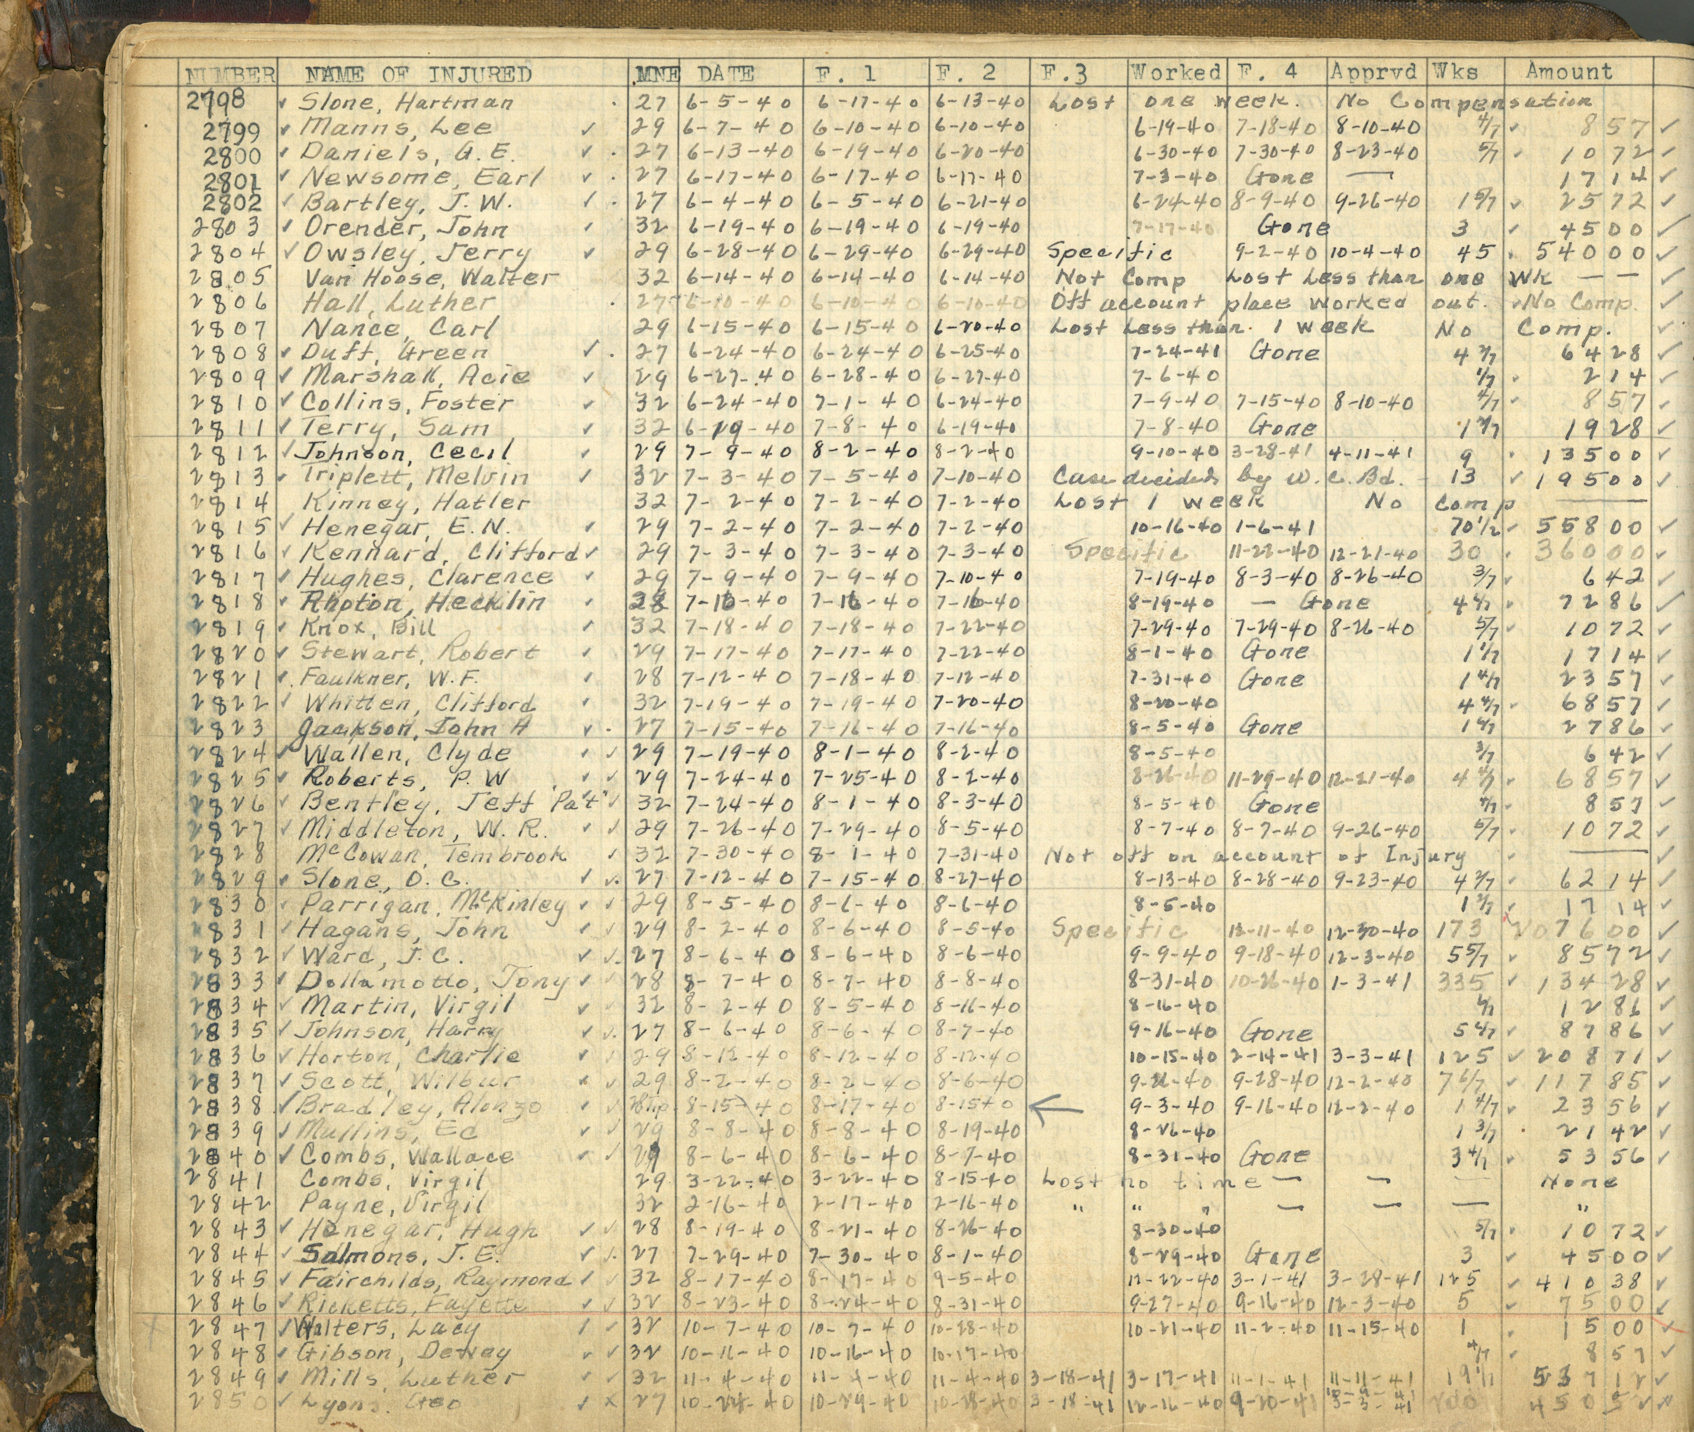 NUMBER NAME OF INJURED MNE DATE F. 1 F. 2 F.3 Worked F. 4 Apprvd Wks Amount
2798 Slone, Hartman 27 6-5-40 6-17-40 6-13-40 Lost one week. No Compensation
2799 Manns, Lee 29 6-7-40 6-10-40 6-10-40 6-19-40 7-18-40 8-10-40 4/7 857
2800 Daniels, G.E. 27 6-13-40 6-19-40 6-20-40 6-30-40 7-30-40 8-23-40 5/7 1072
2801 Newsome, Earl 27 6-17-40 6-17-40 6-17-40 7-3-40 Gone — 1714
2802 Bartley, J.W. 27 6-4-40 6-5-40 6-21-40 6-24-40 8-9-40 9-26-40 1 5/7 2572
2803 Orender, John 32 6-19-40 6-19-40 6-19-40 7-17-40 Gone 3 4500
2804 Owsley, Jerry 29 6-28-40 6-29-40 6-29-40 Specific 9-2-40 10-4-40 45 54000
2805 Van Hoose, Walter 32 6-14-40 6-14-40 6-14-40 Not Comp Lost Less than one Wk — —
2806 Hall, Luther 27 6-10-40 6-10-40 6-10-40 Off account place worked out. No Comp.
2807 Nance, Carl 29 6-15-40 6-15-40 6-20-40 Lost Less than 1 week No Comp.
2808 Duff, Green 27 6-24-40 6-24-40 6-25-40 7-24-41 Gone 4 2/7 6428
2809 Marshall, Acie 29 6-27-40 6-28-40 6-27-40 7-6-40 1/7 214
2810 Collins, Foster 32 6-24-40 7-1-40 6-24-40 7-9-40 7-15-40 8-10-40 4/7 857
2811 Terry, Sam 32 6-19-40 7-8-40 6-19-40 7-8-40 Gone 1 2/7 1928
2812 Johnson, Cecil 29 7-9-40 8-2-40 8-2-40 9-10-40 3-28-41 4-11-41 9 13500
2813 Triplett, Melvin 32 7-3-40 7-5-40 7-10-40 Case decided by W.C.Bd. 13 19500
2814 Kinney, Hatler 32 7-2-40 7-2-40 7-2-40 Lost 1 week No Comp —
2815 Henegar, E.N. 29 7-2-40 7-2-40 7-2-40 10-16-40 1-6-41 70 1/2 55800
2816 Kennard, Clifford 29 7-3-40 7-3-40 7-3-40 Specific 11-22-40 12-21-40 30 36000
2817 Hughes, Clarence 29 7-9-40 7-9-40 7-10-40 7-19-40 8-3-40 8-26-40 3/7 642
2818 Rhoton, Hecklin 28 7-16-40 7-16-40 7-16-40 8-19-40 — Gone 4 6/7 7286
2819 Knox, Bill 32 7-18-40 7-18-40 7-22-40 7-29-40 7-29-40 8-26-40 5/7 1072
2820 Stewart, Robert 29 7-17-40 7-17-40 7-22-40 8-1-40 Gone 1 1/7 1714
2821 Faulkner, W.F. 28 7-12-40 7-18-40 7-12-40 7-31-40 Gone 1 4/7 2357
2822 Whitten, Clifford 32 7-19-40 7-19-40 7-20-40 8-20-40 4 4/7 6857
2823 Jackson, John A 27 7-15-40 7-16-40 7-16-40 8-5-40 Gone 1 6/7 2786
2824 Wallen, Clyde 29 7-19-40 8-1-40 8-2-40 8-5-40 3/7 642
2825 Roberts, P.W. 29 7-24-40 7-25-40 8-2-40 8-26-40 11-29-40 12-21-40 4 4/7 6857
2826 Bentley, Jeff "Pat" 32 7-24-40 8-1-40 8-3-40 8-5-40 Gone 4/7 857
2827 Middleton, W.R. 29 7-26-40 7-29-40 8-5-40 8-7-40 8-7-40 9-26-40 5/7 1072
2828 McCowan, Tembrook 32 7-30-40 8-1-40 7-31-40 Not off on account of Injury —
2829 Slone, O.C. 27 7-12-40 7-15-40 8-27-40 8-13-40 8-28-40 9-23-40 4 2/7 6214
2830 Parrigan, McKinley 29 8-5-40 8-6-40 8-6-40 8-5-40 1 2/7 1714
2831 Hagans, John 29 8-2-40 8-6-40 8-5-40 Specific 12-11-40 12-30-40 173 207600
2832 Ward, J.C. 27 8-6-40 8-6-40 8-6-40 9-9-40 9-18-40 12-3-40 5 5/7 8572
2833 Dollamotto, Tony 28 8-7-40 8-7-40 8-8-40 8-31-40 10-26-40 1-3-41 335 13428
2834 Martin, Virgil 32 8-2-40 8-5-40 8-16-40 8-16-40 6/7 1286
2835 Johnson, Harry 27 8-6-40 8-6-40 8-7-40 9-16-40 Gone 5 6/7 8786
2836 Horton, Charlie 29 8-12-40 8-12-40 8-12-40 10-15-40 2-14-41 3-3-41 125 20871
2837 Scott, Wilbur 29 8-2-40 8-2-40 8-6-40 9-26-40 9-28-40 12-2-40 7 6/7 11785
2838 Bradley, Alonzo 8-15-40 8-17-40 8-15-40 ← 9-3-40 9-16-40 12-2-40 1 4/7 2356
2839 Mullins, Ed 29 8-8-40 8-8-40 8-19-40 8-26-40 1 3/7 2142
2840 Combs, Wallace 29 8-6-40 8-6-40 8-7-40 8-31-40 Gone 3 4/7 5356
2841 Combs, Virgil 29 3-22-40 3-22-40 8-15-40 Lost no time — — — None
2842 Payne, Virgil 32 2-16-40 2-17-40 2-16-40 " " " — — — "
2843 Henegar, Hugh 28 8-19-40 8-21-40 8-26-40 8-30-40 5/7 1072
2844 Salmons, J.E. 27 7-29-40 7-30-40 8-1-40 8-29-40 Gone 3 4500
2845 Fairchilds, Raymond 32 8-17-40 8-17-40 9-5-40 12-22-40 3-1-41 3-28-41 125 41038
2846 Ricketts, Fayette 32 8-23-40 8-24-40 8-31-40 9-27-40 9-16-40 12-3-40 5 7500
2847 Walters, Lacy 32 10-7-40 10-7-40 10-28-40 10-21-40 11-2-40 11-15-40 1 1500
2848 Gibson, Dewey 32 10-16-40 10-16-40 10-17-40 4/7 857
2849 Mills, Luther 32 11-4-40 11-4-40 11-4-40 3-18-41 3-17-41 11-1-41 11-11-41 19 1/7 53712
2850 Lyons, Geo 27 10-28-40 10-29-40 10-28-40 3-18-41 12-16-40 9-20-41 200 45052